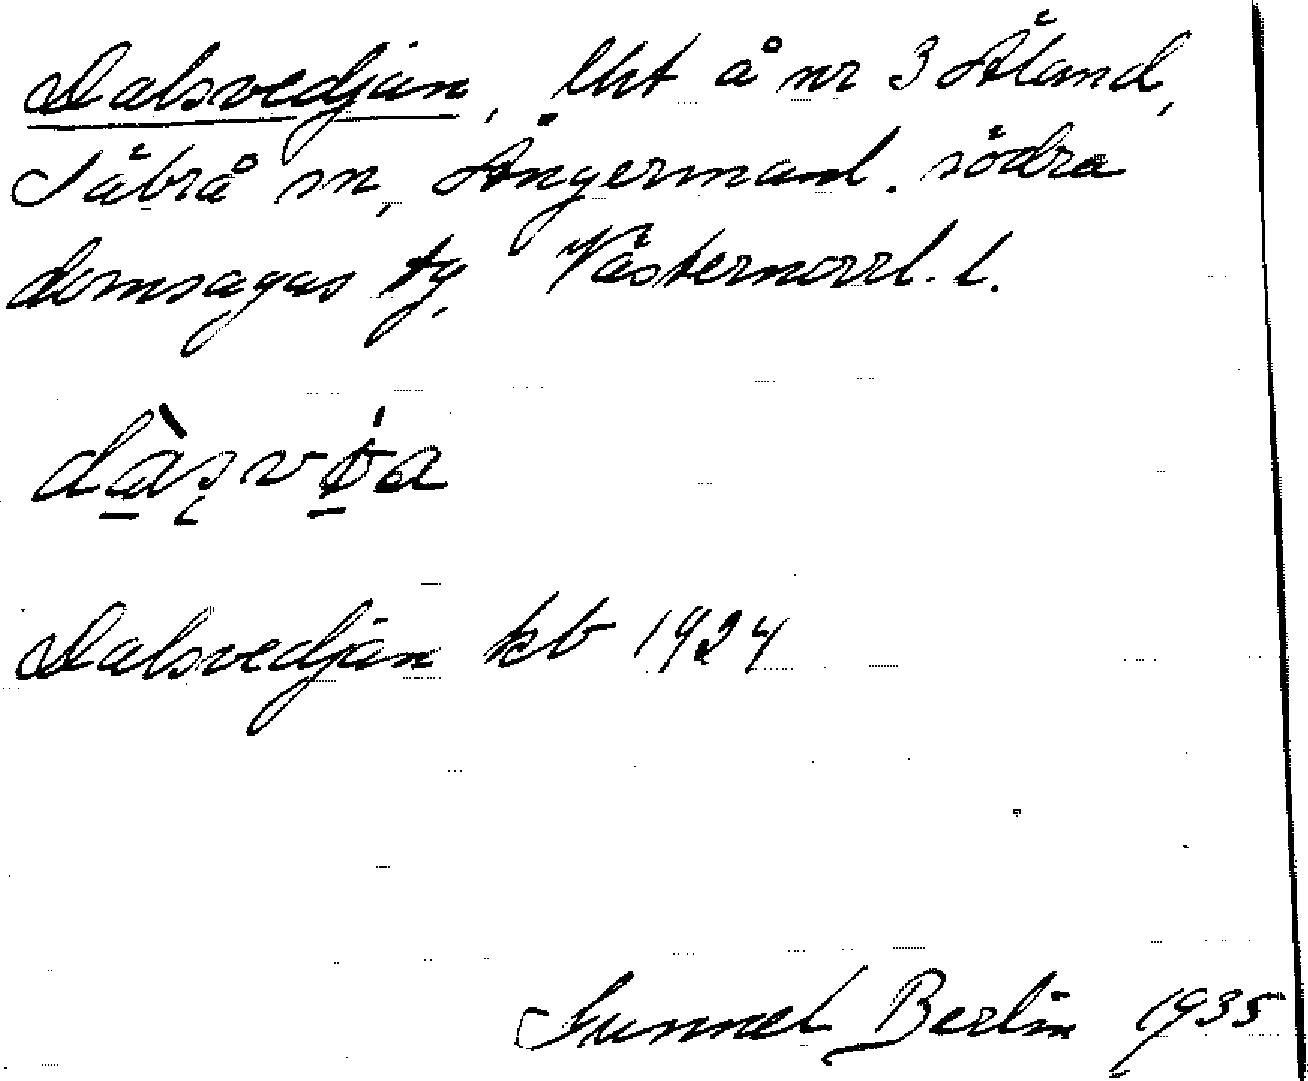 Dalsvedjan, lht å nr 3 Åland,
Säbrå sn, Ångermanl. södra
domsagas tg, Västernorrl. l.
Dalsvedjan kb 1924
Gunnel Berlin 1935